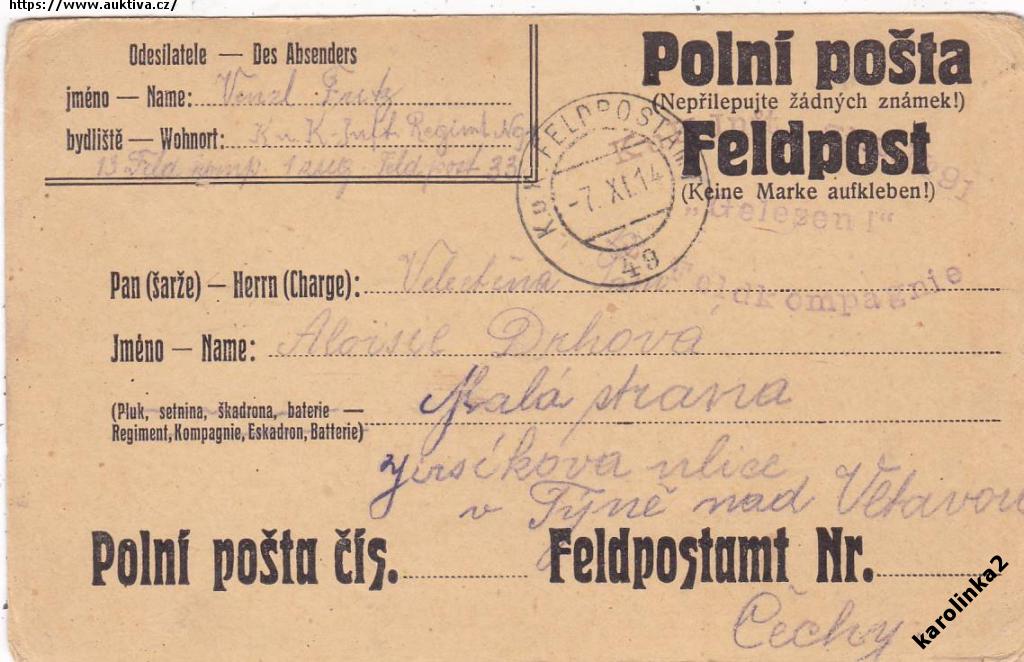 https://www.auktiva.cz/
Odesilatele — Des Absenders
jméno — Name: Venzl Fritz
bydliště — Wohnort: K u K Inft. Regimt. No
13 Feld komp 1 zug Feld post 33
Polní pošta
(Nepřilepujte žádných známek!)
Feldpost
(Keine Marke aufkleben!)
K.u.K. FELDPOSTAMT
-7. XI. 14
49
„Gelesen!“
Feldkompagnie
Pan (šarže) — Herrn (Charge):
Jméno — Name: Aloisie Drhova
(Pluk, setnina, škadrona, baterie —
Regiment, Kompagnie, Eskadron, Batterie)
Malá strana
Jirsíkova ulice
v Týně nad Vltavou
Polní pošta čís. Feldpostamt Nr.
Čechy
karolinka2